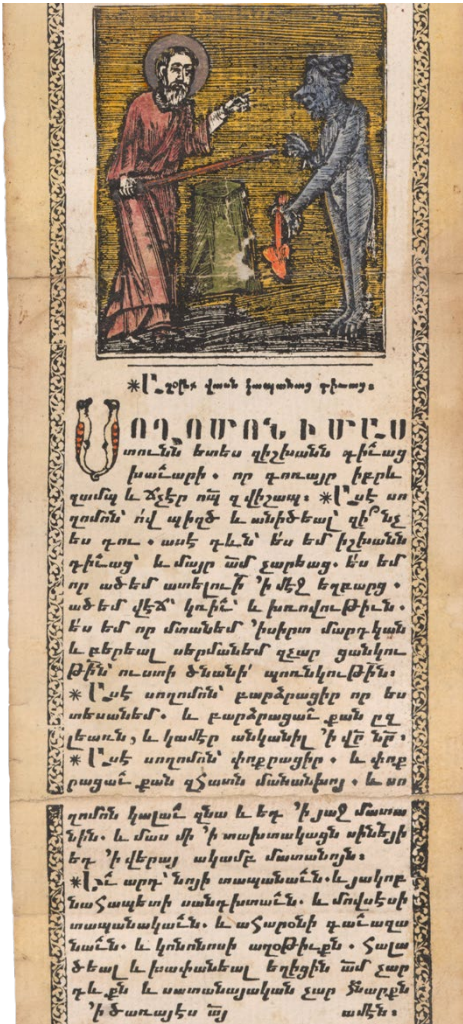 ✳Աղօթք վասն խափանաց դիւաց։
ՍՈՂՈՄՈՆ ԻՄԱՍ
տունն ետես զիշխանն դիւաց
խաւարի . որ գոռայր իբրև
զամպ և ճչէր որպէս զվիշապ։ ✳Ասէ սո
ղոմոն՝ ո՛վ պիղծ և անիծեալ զի՞նչ
ես դու . ասէ դևն՝ ես եմ իշխանն
դիւաց՝ և մայր ամ չարեաց. ես եմ
որ ածեմ ատելուի՝ ի մէջ եղբարց .
ածեմ վէճ՝ կռիւ՝ և խռովութիւն .
ես եմ որ մտանեմ ՚ի սիրտ մարդկան
և բերեալ սերմանեմ զչար ցանկու
թի՝ ուստի ծնանի՝ պոռնկութի։
✳ Ասէ սողոմոն՝ բարձրացիր որ ես
տեսանեմ . և բարձրացաւ քան զ
լեառն, և կամէր անկանիլ ՚ի վր նր։
✳ Ասէ սողոմոն՝ փոքրացիր . և փոք
րացաւ քան զհատն մանանխոյ . և սո
ղոմոն կալաւ զնա և եդ ՚ի յաջ մատա
նին . և մաս մի ՚ի տախտակացն սինեյի
եդ ՚ի վերայ ական մատանոյն։
✳Այլ արդ՝ նոյի տապանաւն . և յակոբ
նահապետի սանդխտաւն . և մովսէսի
տապանակաւն . և ահարօնի գաւազա
նաւն . և կոնոնոսի աղօթիւքն . հալա
ծեալ և խափանեալ եղիցին ամ չար
դևքն և սատանայական չար հնարքն
՚ի ծառայէս այ ամէն.